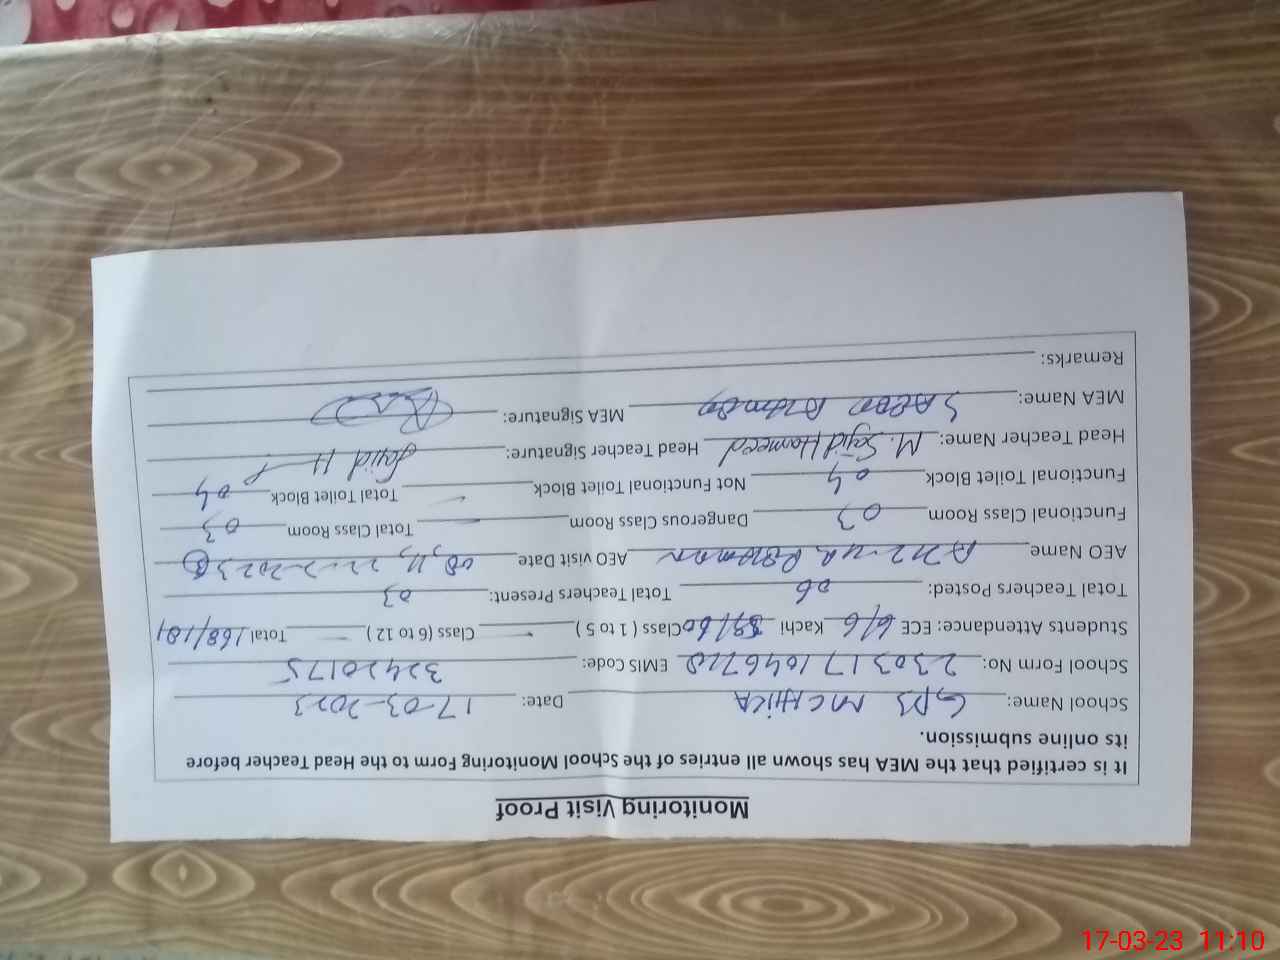 Monitoring Visit Proof
It is certified that the MEA has shown all entries of the School Monitoring Form to the Head Teacher before
its online submission.
School Name: GPS Date: 17-03-2023
School Form No: EMIS Code: 32420175
Students Attendance: ECE 6/6 Kachi Class ( 1 to 5 ) – Class (6 to 12 ) – Total 168/181
Total Teachers Posted: 06 Total Teachers Present: 03
AEO Name AEO visit Date
Functional Class Room 03 Dangerous Class Room – Total Class Room 03
Functional Toilet Block 04 Not Functional Toilet Block – Total Toilet Block 04
Head Teacher Name: M. Sajid Hameed Head Teacher Signature: Sajid H
MEA Name: MEA Signature:
Remarks:
17-03-23 11:10